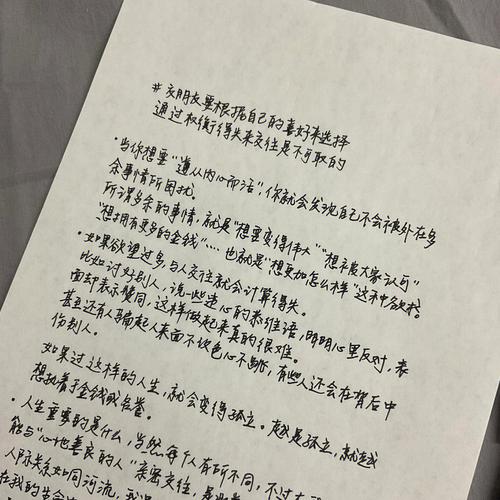 # 交朋友要根据自己的喜好来选择
通过权衡得失来交往是不可取的
· 当你想要“遵从内心而活”,你就会发现自己不会被外在多
余事情所困扰。
所谓多余的事情,就是“想要变得伟大”“想被大家认可”
“想拥有更多的金钱”…… 也就是“想更加怎么样”这种欲求。
· 如果欲望过多,与人交往就会计算得失。
比如讨好别人,说一些违心的恭维语,明明心里反对,表
面却表示赞同,这样做起来真的很难。
甚至还有人骗起人来面不改色心不跳,有些人还会在背后中
伤别人。
如果过这样的人生,就会变得孤立。越是孤立,就越
想执着于金钱或名誉。
· 人生重要的是什么,当然每个人有所不同,不过
能与“心地善良的人”亲密交往,是
人际关系如同河流,
在我的生命